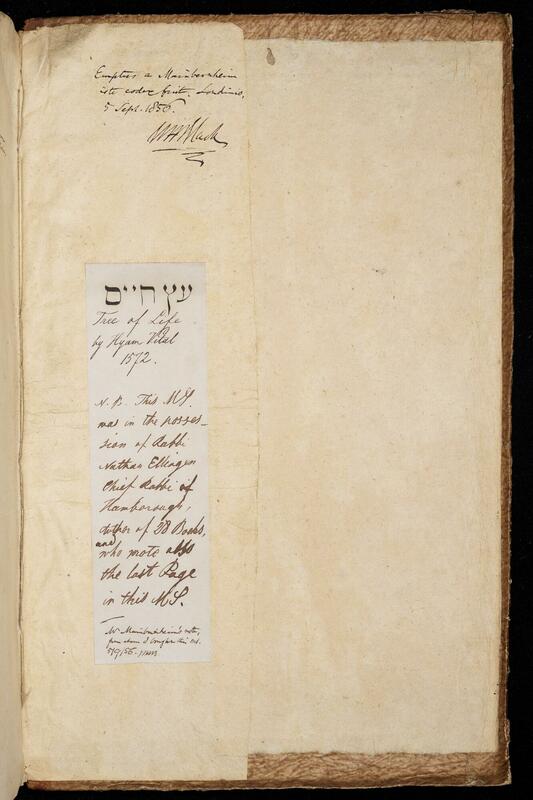 Emptus a Mainbernheim
iste codex fuit, Londinio,
5 Sept. 1856.
WHBlack
עץ חיים
Tree of Life
by Hyam Vital
1572.
N. B. This MS.
was in the posses-
sion of Rabbi
Nathan Ellingen
Chief Rabbi of
Hamborough,
Author of 28 Books,
and
who wrote also
the last Page
in this MS.
Mr Mainbernheim's note,
from whom I bought this MS.
5/9/56.